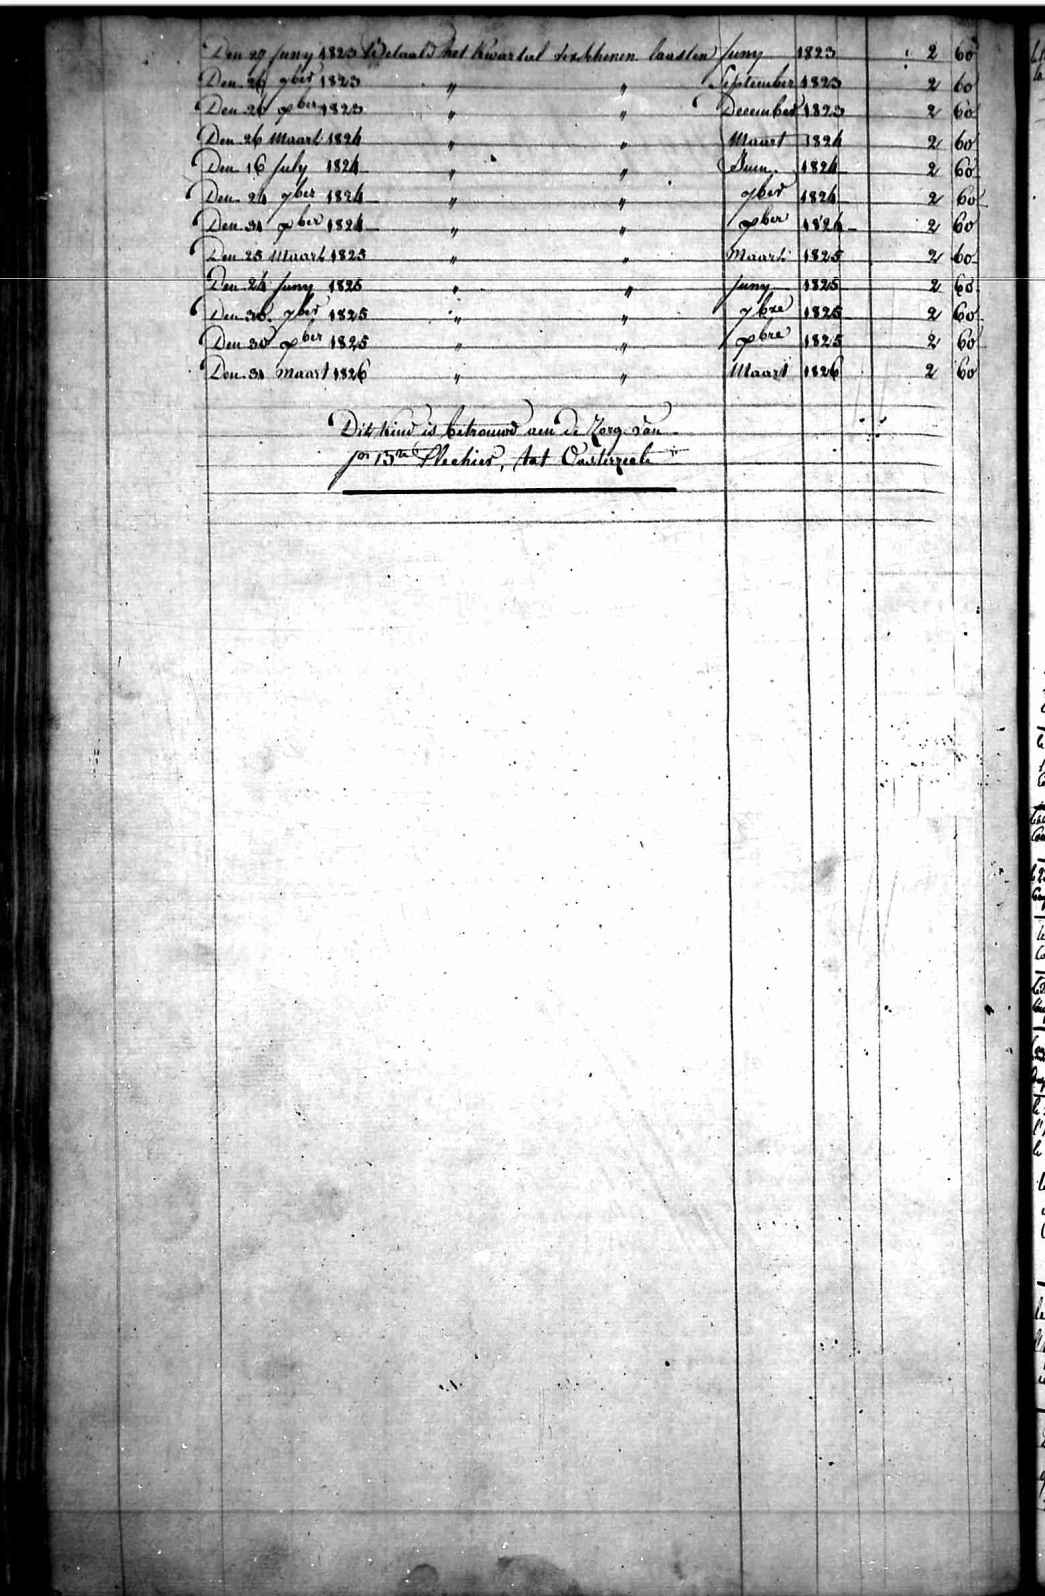 Den 27 Juny 1823 betaald het Kwartael verschenen laasten Juny 1823 2 60
Den 26 7ber 1823 " " September 1823 2 60
Den 26 xber 1823 " " December 1823 2 60
Den 26 Maart 1824 " " Maart 1824 2 60
Den 16 July 1824 " " Juin. 1824 2 60
Den 24 7ber 1824 " " 7ber 1824 2 60
Den 31 xber 1824 " " xber 1824 2 60
Den 25 Maart 1825 " " Maart 1825 2 60
Den 24 Juny 1825 " " Juny 1825 2 60
Den 30 7ber 1825 " " 7bre 1825 2 60
Den 30 xber 1825 " " xbre 1825 2 60
Den 31 Maart 1826 " " Maart 1826 2 60
Dit kind is betrouwd aen de Zorg van
tot Oosterzeele